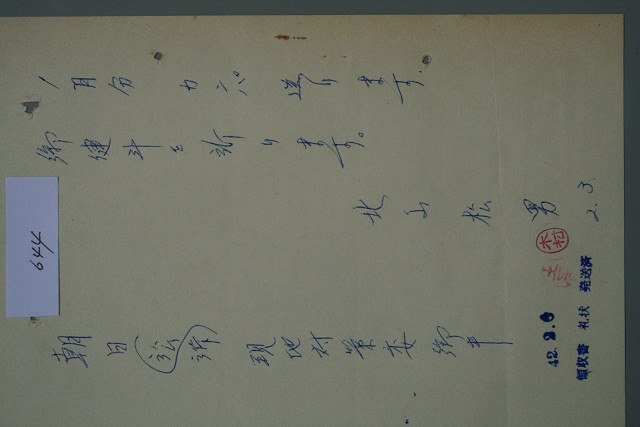 1月分 カンパ 送ります.
御健斗を祈ります。
北山松男
2.3.
朝日訴訟 現地対策委 御中
木村
済
42. 2. 6
領収書 礼状 発送済
644